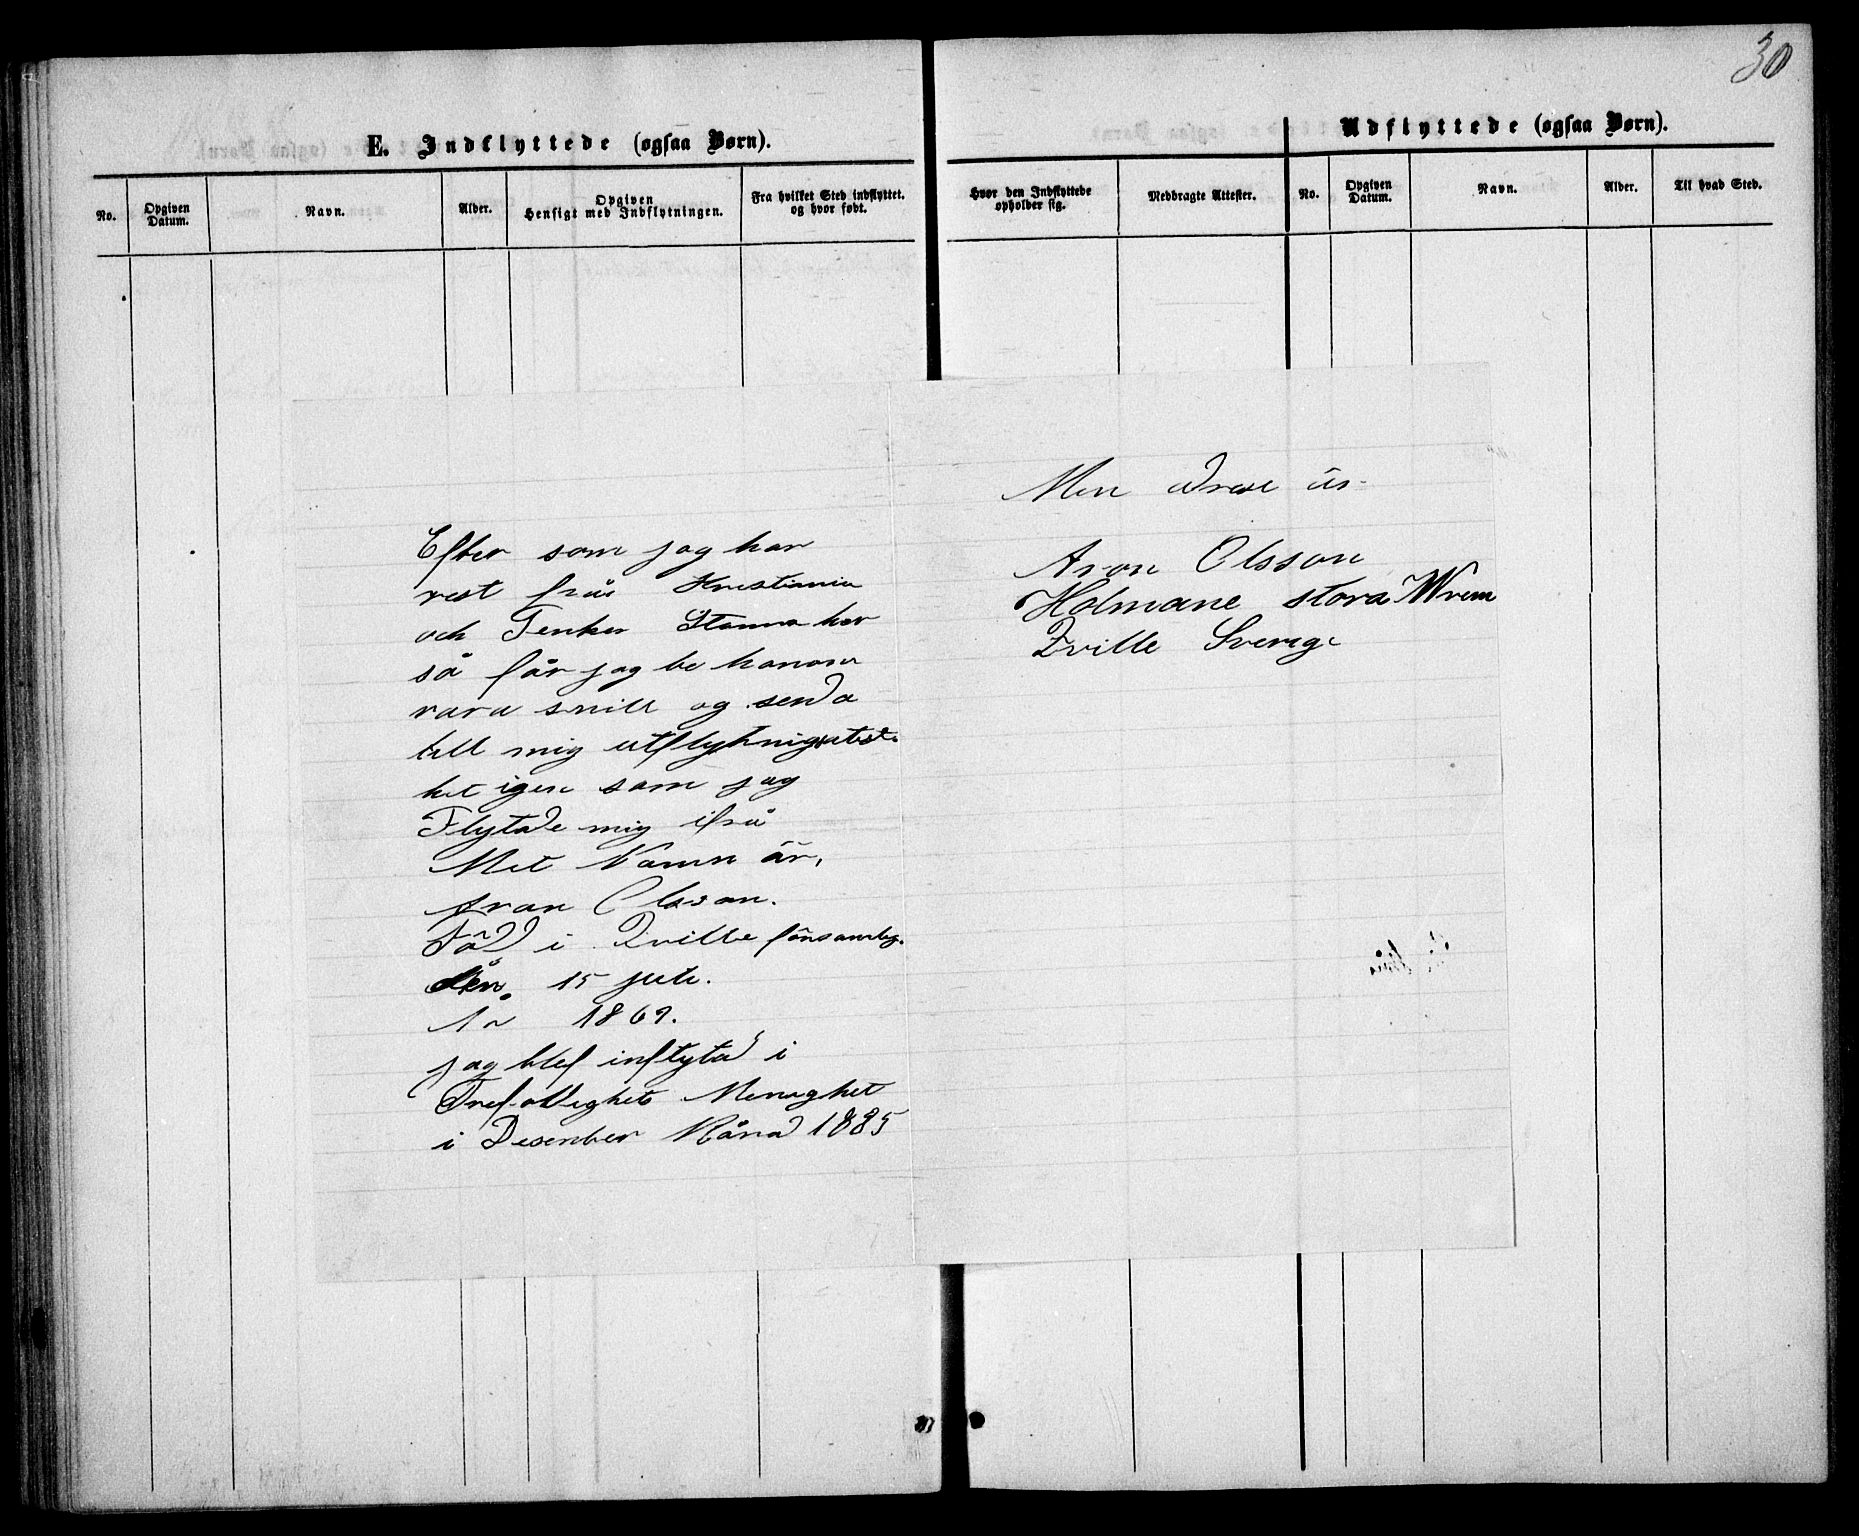 30
E. Indflyttede (ogsaa Børn).
Udflyttede (ogsaa Børn).
No.
Opgiven Datum.
Navn.
Alder.
Opgiven Hensigt med Indflytningen.
Fra hvilket Sted indflyttet. og hvor født.
Hvor den Indflyttede opholder sig.
Meddragte Attester.
No.
Opgiven Datum.
Navn.
Alder.
Til hvad Sted.
Efter som jag har
rest från Kristiania
och Tenker Stanna her
så får jag be honom
vara snill og senda
till mig utflytningsatest.
het igen som jag
Flytade mig ifrå
Mit Namn är,
Aron Olsson.
Föd i Qville församlig.
den 15 juli.
År 1869.
jag blef inflytad i
Trefoldighets Menighet
i Desenber Månad 1885
Men adrese är
Aron Olsson
Holmane stora Wrem
Qville Sverige